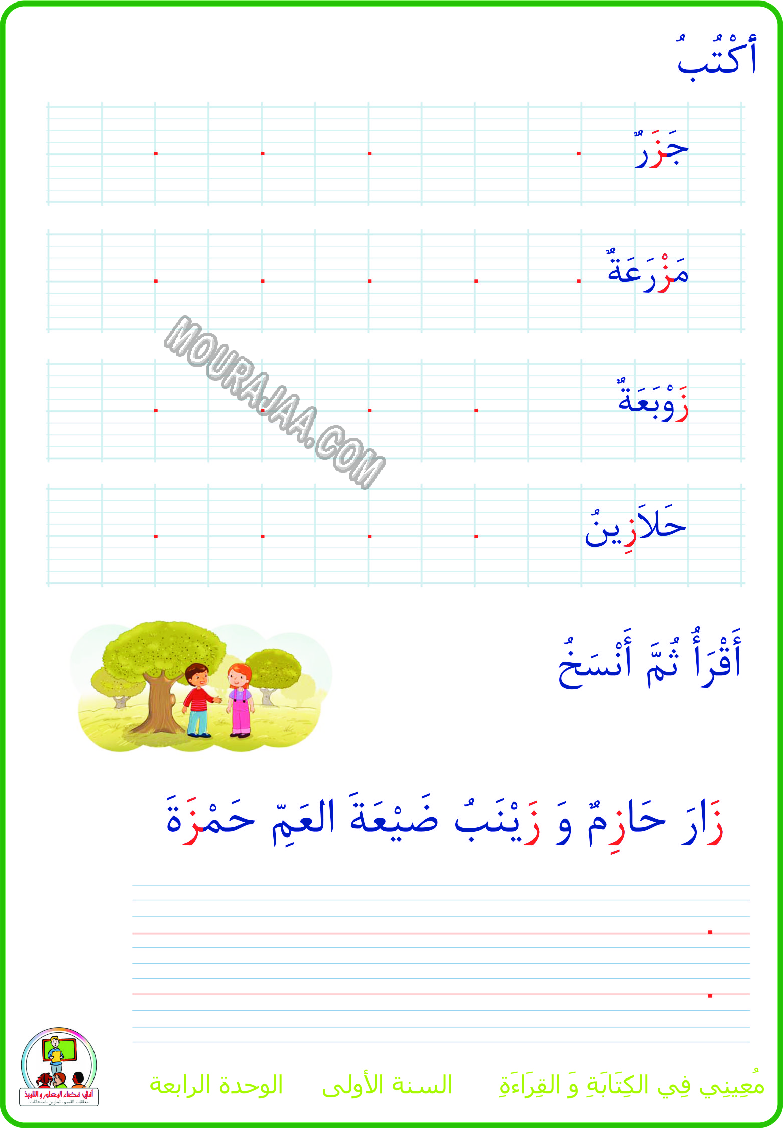 أكْتُبُ
جَزَرٌ
مَزْرَعَةٌ
زَوْبَعَةٌ
حَلاَزِينُ
MOURAJAA.COM
أَقْرَأُ ثُمَّ أَنْسَخُ
زَارَ حَازِمٌ وَ زَيْنَبُ ضَيْعَةَ العَمِّ حَمْزَةَ
مُعِينِي فِي الكِتَابَةِ وَ القِرَاءَةِ السنة الأولى الوحدة الرابعة